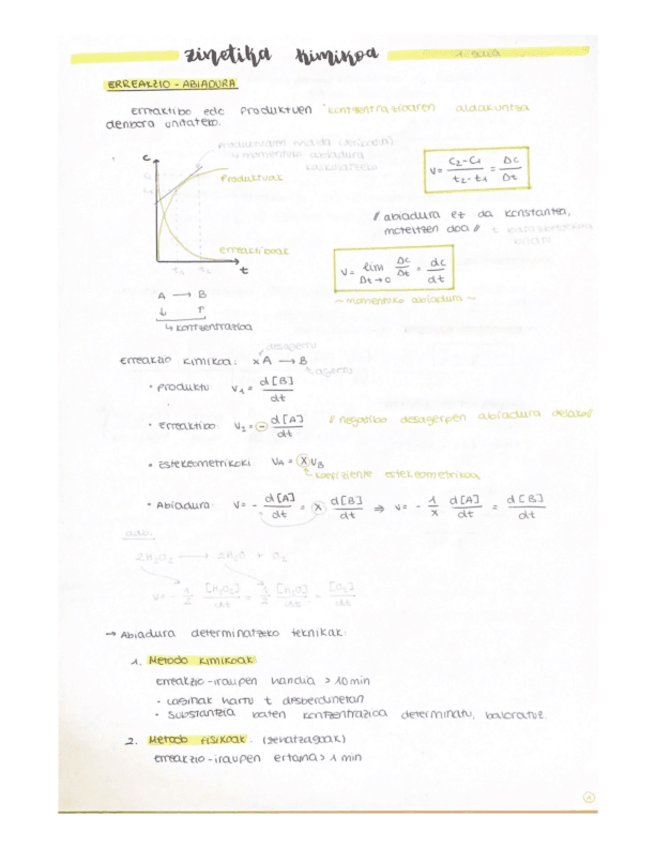 zinetika kimikoa
1. gaia
ERREAKZIO - ABIADURA
Erreaktibo edo produktuen kontzentrazioaren aldakuntza
denbora unitateko.
↳ momentuko abiadura
kalkulatzeko
C
Produktuak
Erreaktiboak
t₁ t₂ t
V = C₂-C₁ / t₂-t₁ = ΔC / Δt
// abiadura ez da konstantea,
moteltzen doa //
V = lim Δt→0 ΔC/Δt = dc/dt
~ momentuko abiadura ~
A → B
↳ kontzentrazioa
desagertu
Erreakzio kimikoa: xA → B
agertu
• Produktu: V₁ = d[B]/dt
• Erreaktibo: V₂ = - d[A]/dt // negatibo desagerpen abiadura delako//
• Estekeometrikoki VA = xVB
koefiziente estekeometrikoa
• Abiadura: V = - d[A]/dt = x d[B]/dt ⇒ V = - 1/x d[A]/dt = d[B]/dt
adb.
2H₂O₂ → 2H₂O + O₂
V = - 1/2 [H₂O₂]/dt = 1/2 [H₂O]/dt = [O₂]/dt
→ Abiadura determinatzeko teknikak:
1. Metodo kimikoak:
erreakzio-iraupen handia > 10 min
• Laginak hartu t desberdinetan
• Substantzia baten kontzentrazioa determinatu, baloratuz.
2. Metodo fisikoak. (zehatzagoak)
erreakzio-iraupen ertaina > 1 min
1